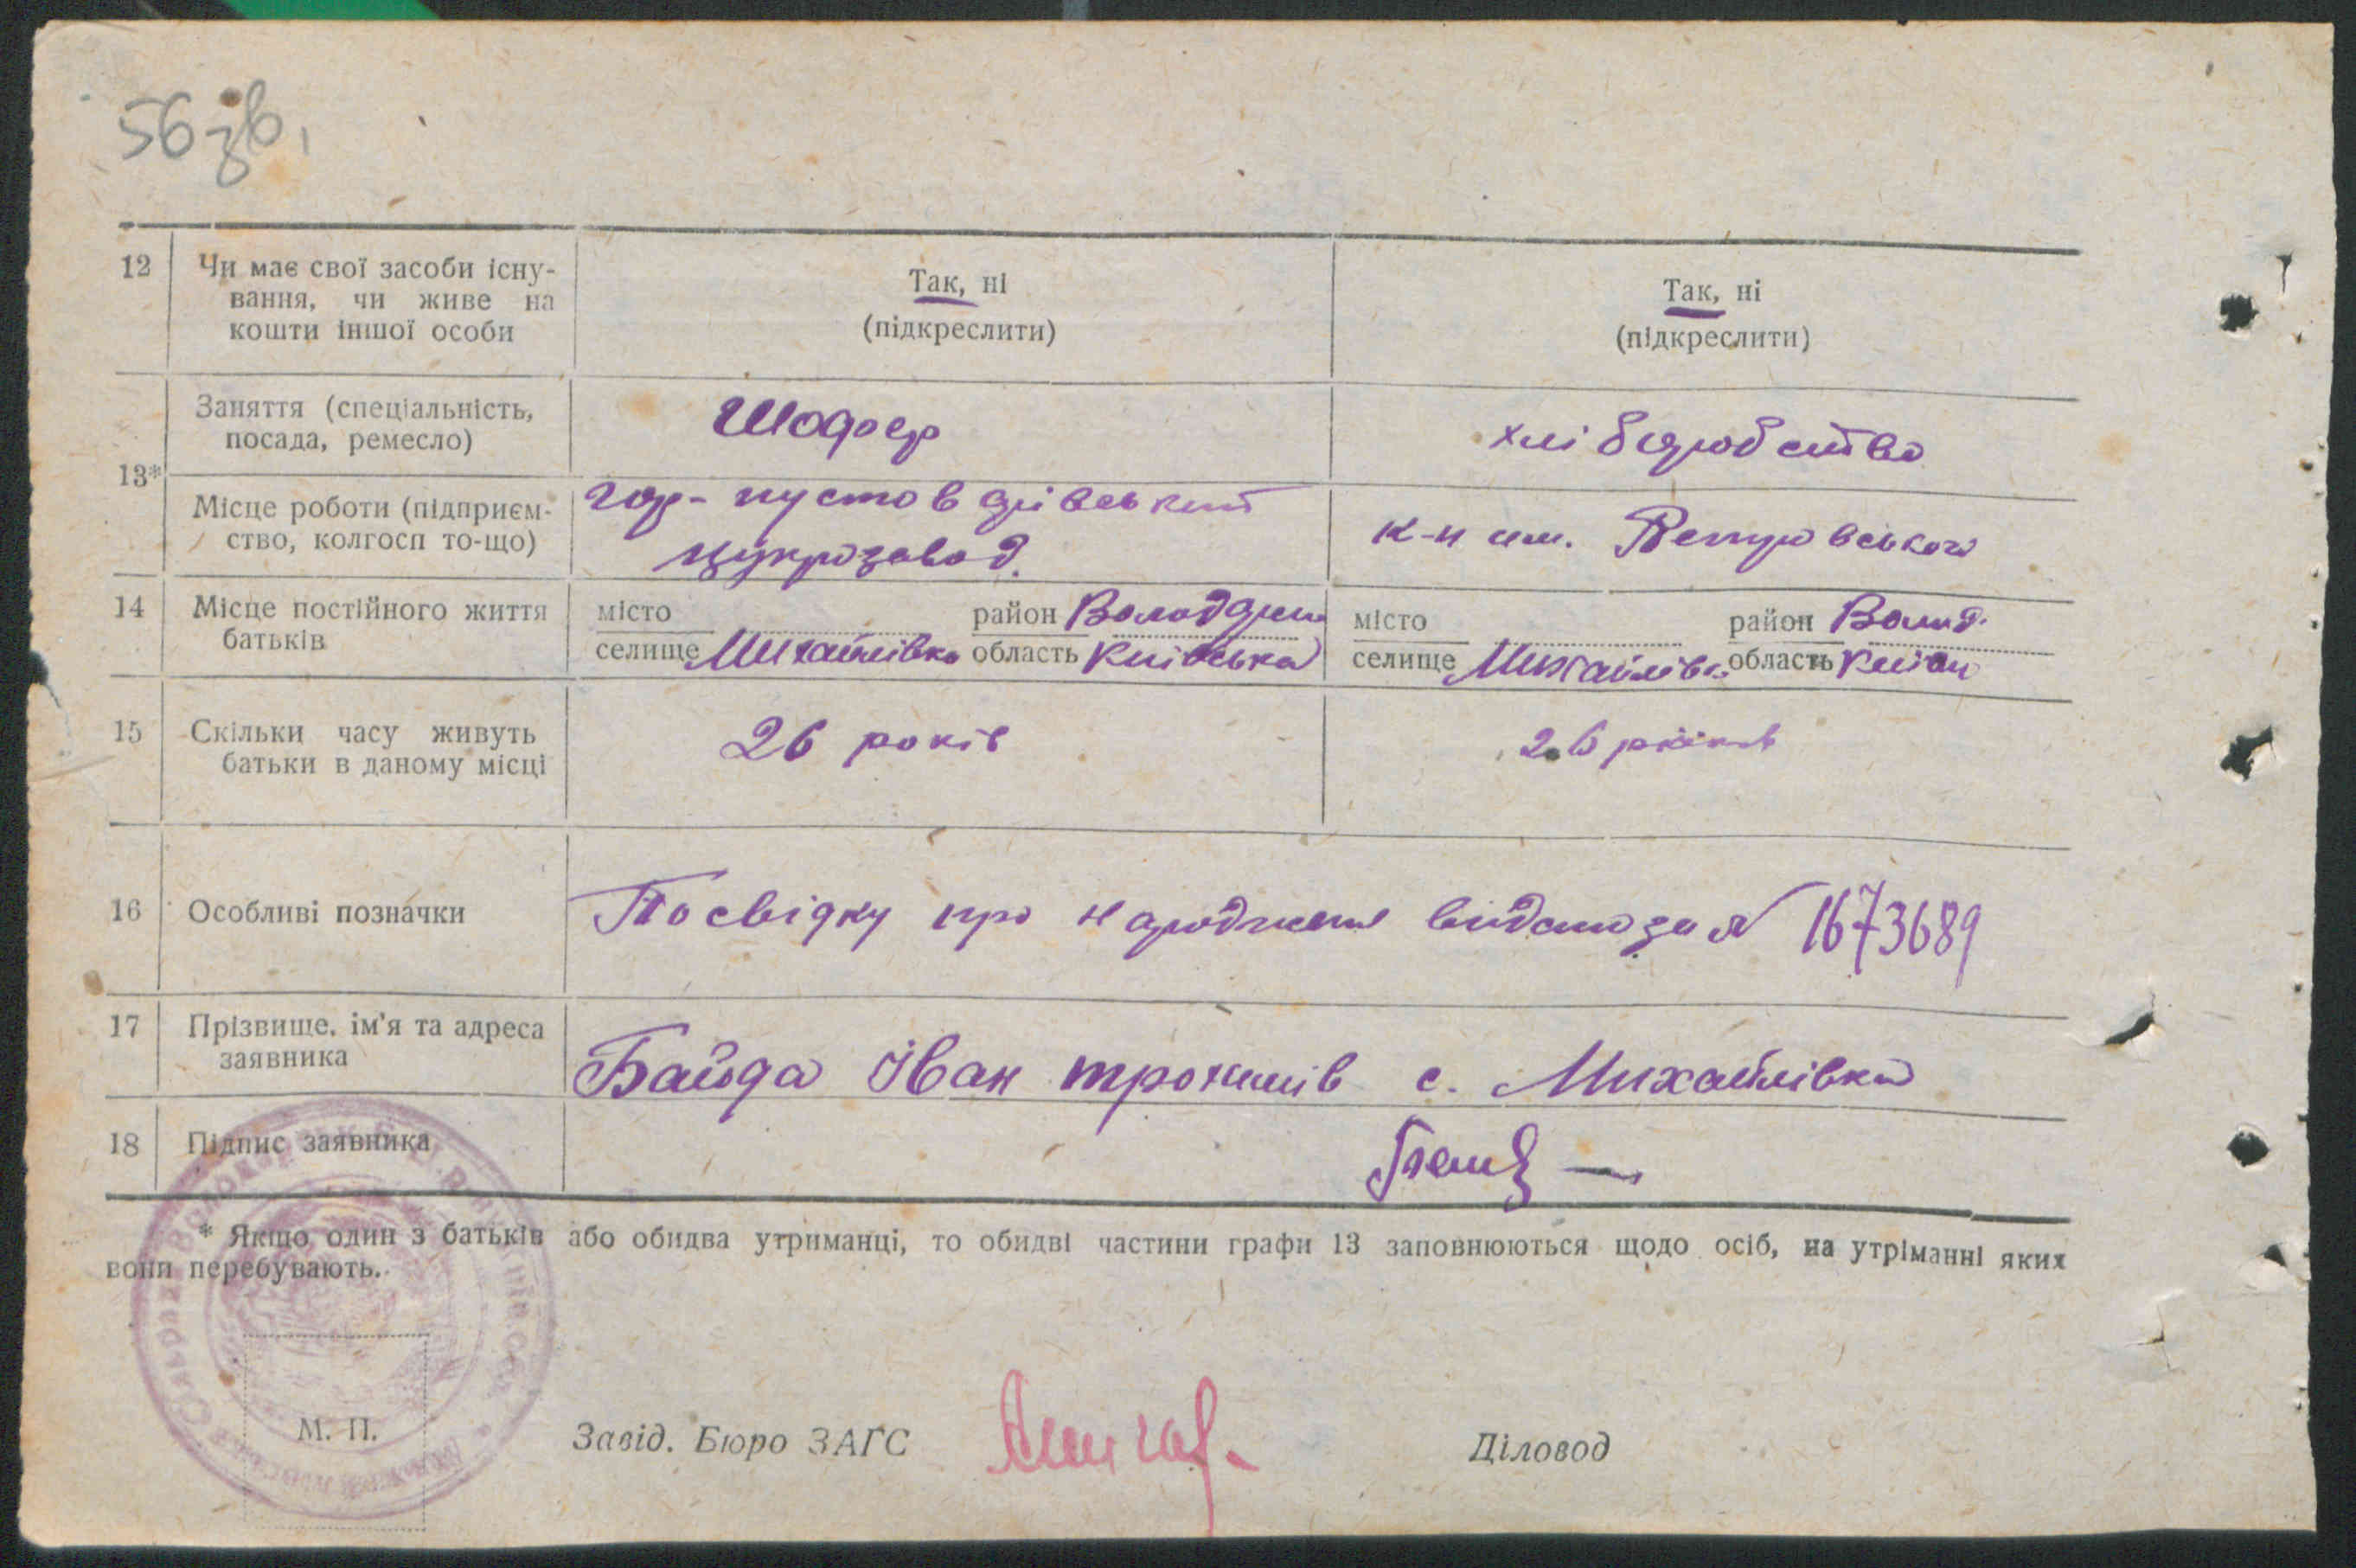 56 зв.
12 Чи має свої засоби існу-
вання, чи живе на
кошти іншої особи
Так, ні
(підкреслити)
Так, ні
(підкреслити)
13*
Заняття (спеціальність,
посада, ремесло)
Шофер
хліборобство
Місце роботи (підприєм-
ство, колгосп то-що)
гор-пустоварівський
цукрозавод.
к-п им. Петровського
14 Місце постійного життя
батьків
місто район Володарськ
селище Михайлівка область Київська
місто район Волод.
селище Михайлівк область Київськ
15 Скільки часу живуть
батьки в даному місці
26 років
26 років
16 Особливі позначки
Посвідку про народження видано за № 1673689
17 Прізвище, ім'я та адреса
заявника
Байда Іван трохимів с. Михайлівка
18 Підпис заявника
* Якщо один з батьків або обидва утриманці, то обидві частини графи 13 заповнюються щодо осіб, на утріманні яких
вони перебувають.
М. П.
Завід. Бюро ЗАГС
Діловод